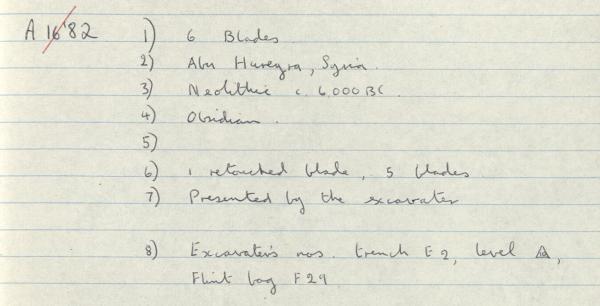 A 16'82 1) 6 Blades
2) Abu Hureyra, Syria.
3) Neolithic c. 6,000 BC.
4) Obsidian.
5)
6) 1 retouched blade, 5 blades
7) Presented by the excavator
8) Excavator's nos. trench E2, level A,
Flint bag F29